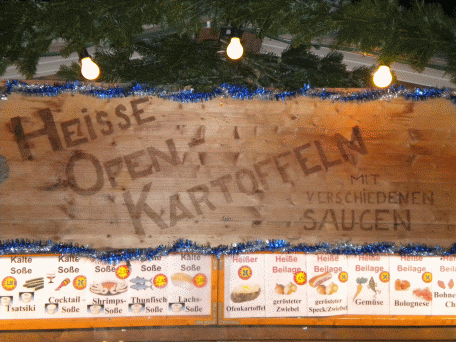 HEISSE
OFEN-
KARTOFFELN
MIT
VERSCHIEDENEN
SAUCEN
Kalte Soße
Tsatsiki
Kalte Soße
Cocktail-Soße
Kalte Soße
Shrimps-Soße
Kalte Soße
Thunfisch Soße
Kalte Soße
Lachs-Soße
Heißer
Ofenkartoffel
Heiße Beilage
gerösteter Zwiebel
Heiße Beilage
gerösteter Speck/Zwiebel
Heiße Beilage
Gemüse
Heiße Beilage
Bolognese
Heiße Beilage